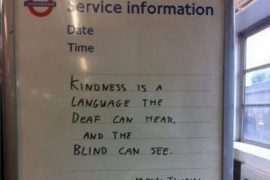 Service information
Date
Time
KINDNESS IS A
LANGUAGE THE
DEAF CAN HEAR,
AND THE
BLIND CAN SEE.